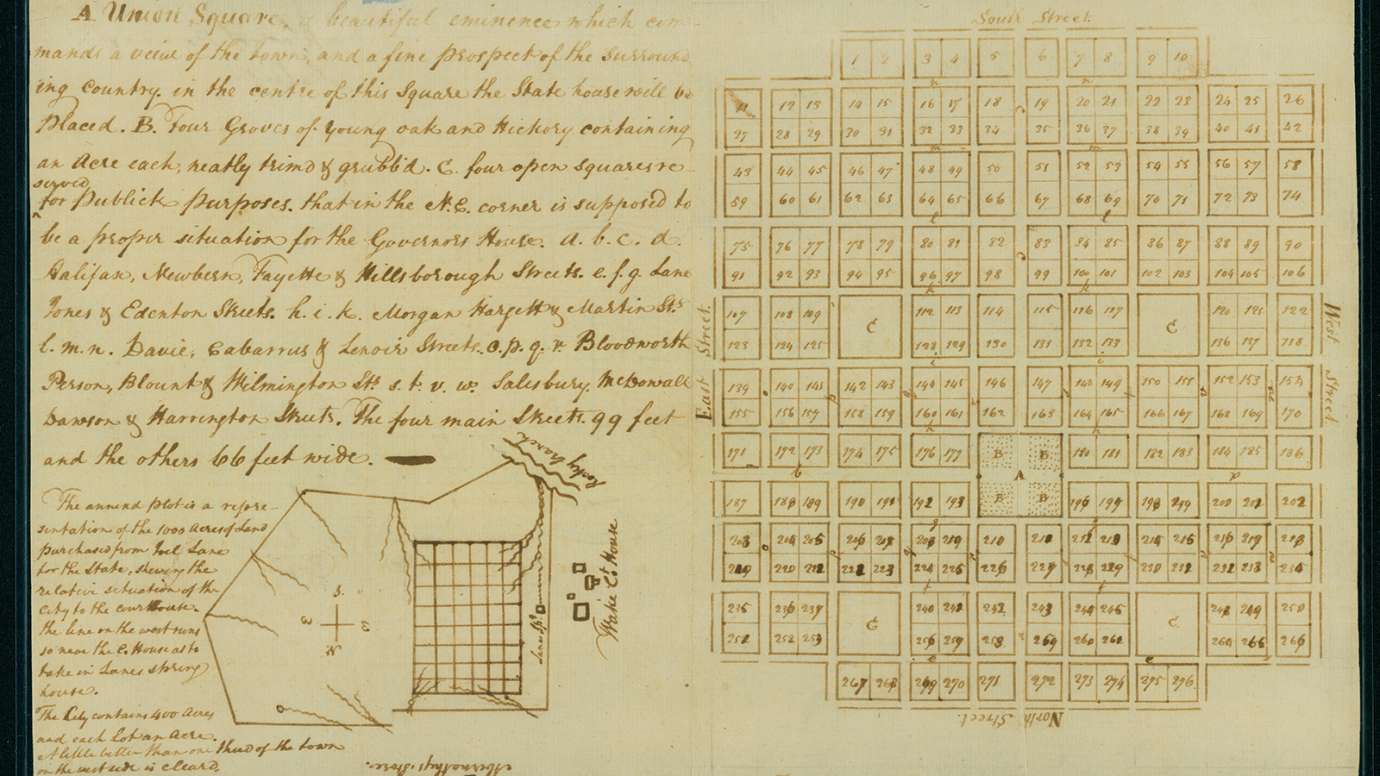 A Union Square, a beautiful eminence which com-
mands a veiw of the town, and a fine prospect of the surround
ing country. in the centre of this Square the State house will be
Placed. B. Four Groves of young oak and Hickory containing
an Acre each, neatly trimd & grubbld. C. four open squares re-
served
for Publick Purposes. that in the N.E. corner is supposed to
be a proper situation for the Governors House. a. b. c. d.
Halifax, Newbern, Fayette & Hillsborough Streets. e. f. g. Lane
Jones & Edenton Streets. h. i. k. Morgan Hargett & Martin Sts.
l. m. n. Davie, Cabarrus & Lenoir Streets. o. p. q. r. Bloodworth
Person, Blount & Wilmington Sts. s. t. v. w. Salesbury, McDowall
Dawson & Harrington Streets. The four main Streets. 99 feet
and the others 66 feet wide.
The annend Plot is a repre-
sentation of the 1000 Acres of Land
purchased from Joel Lane
for the State, shewing the
relative situation of the
City to the court House.
the line on the west runs
so near the C. House as to
take in Lanes spring
house.
The City contains 400 Acres
and each Lot an Acre.
A little better than one third of the town
on the west side is cleard.
Rocky branch
Wake Ct. House
S
N
South Street
East Street
West Street
North Street
1 2 3 4 5 6 7 8 9 10
11 12 13 14 15 16 17 18 19 20 21 22 23 24 25 26
27 28 29 30 31 32 33 34 35 36 37 38 39 40 41 42
43 44 45 46 47 48 49 50 51 52 53 54 55 56 57 58
59 60 61 62 63 64 65 66 67 68 69 70 71 72 73 74
75 76 77 78 79 80 81 82 83 84 85 86 87 88 89 90
91 92 93 94 95 96 97 98 99 100 101 102 103 104 105 106
107 108 109 C 112 113 114 115 116 117 C 120 121 122
123 124 125 128 129 130 131 132 133 136 137
139 140 141 142 143 144 145 146 147 148 149 150 151 152 153 154
155 156 157 158 159 160 161 162 163 164 165 166 167 168 169 170
171 172 173 174 175 176 177 B B 180 181 182 183 184 185 186
A
187 188 189 190 191 192 193 B B 196 197 198 199 200 201 202
C C
267 268 269 270 271 272 273 274 275 276